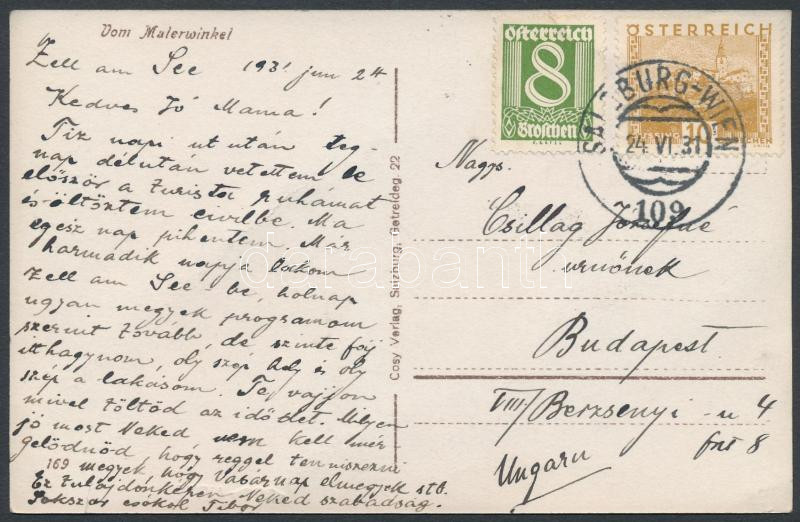 Vom Malerwinkel
Zell am See 1931 jun 24
Kedves Jó Mama!
Tiz napi ut után teg-
nap délután vetettem le
először a turista ruhámat
és öltöztem civilbe. Ma
egész nap pihentem. Már
harmadik napja lakom
Zell am See be, holnap
ugyan megyek programom
szerint tovább, de szinte fáj
itthagynom, oly szép hely és oly
szép a lakásom. Te vajjon
mivel töltöd az idődet. Milyen
jó most Neked nem kell mér-
gelődnöd, hogy reggel tenniszezni
169 megyek, hogy Vasárnap elmegyek stb.
Ez tulajdonképen Neked szabadság.
Sokszor csókol Tibor
Cosy Verlag, Salzburg, Getreideg. 22
Österreich
8
Groschen
ÖSTERREICH
10
GROSCHEN
SALZBURG-WIEN
24.VI.31
109
Nagys.
Csillag Józsefné
urnőnek
Budapest
VIII/ Berzsenyi-u 4
fnt 8
Ungarn
darabanth